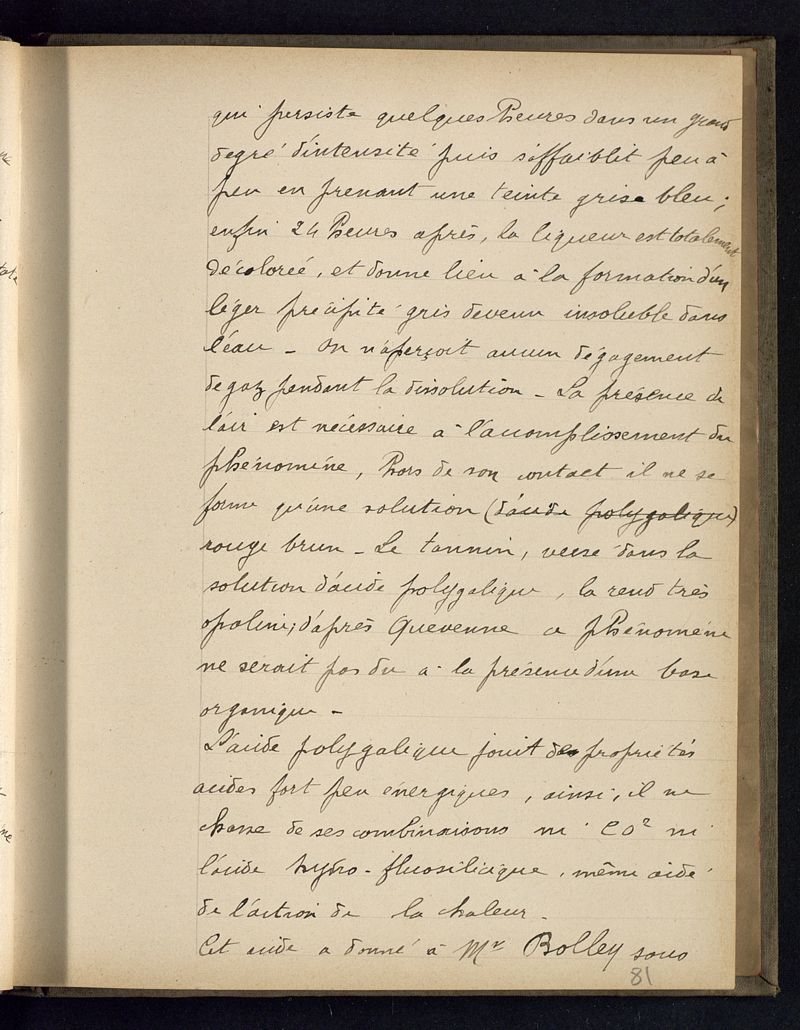 qui persiste quelques heures dans un grand
degré d'intensité puis s'affaiblit peu à
peu en prenant une teinte grise bleu;
enfin 24 heures après, la liqueur est totalement
décolorée, et donne lieu à la formation d'un
léger précipité gris devenu insoluble dans
l'eau - On n'aperçoit aucun dégagement
de gaz pendant la dissolution - La présence de
l'air est nécessaire à l'acomplissement du
phénomène, hors de son contact il ne se
forme qu'une solution (d'acide polygalique)
rouge brun - Le tannin, versé dans la
solution d'acide polygalique, la rend très
opaline; d'après Quevenne ce phénomène
ne serait pas du à la présence d'une base
organique -
L'acide polygalique jouit des propriétés
acides fort peu énergiques, ainsi, il ne
chasse de ses combinaisons ni CO² ni
l'acide hydro-fluosilicique, même aidé
de l'action de la chaleur -
Cet acide a donné à Mr Bolley sous
81